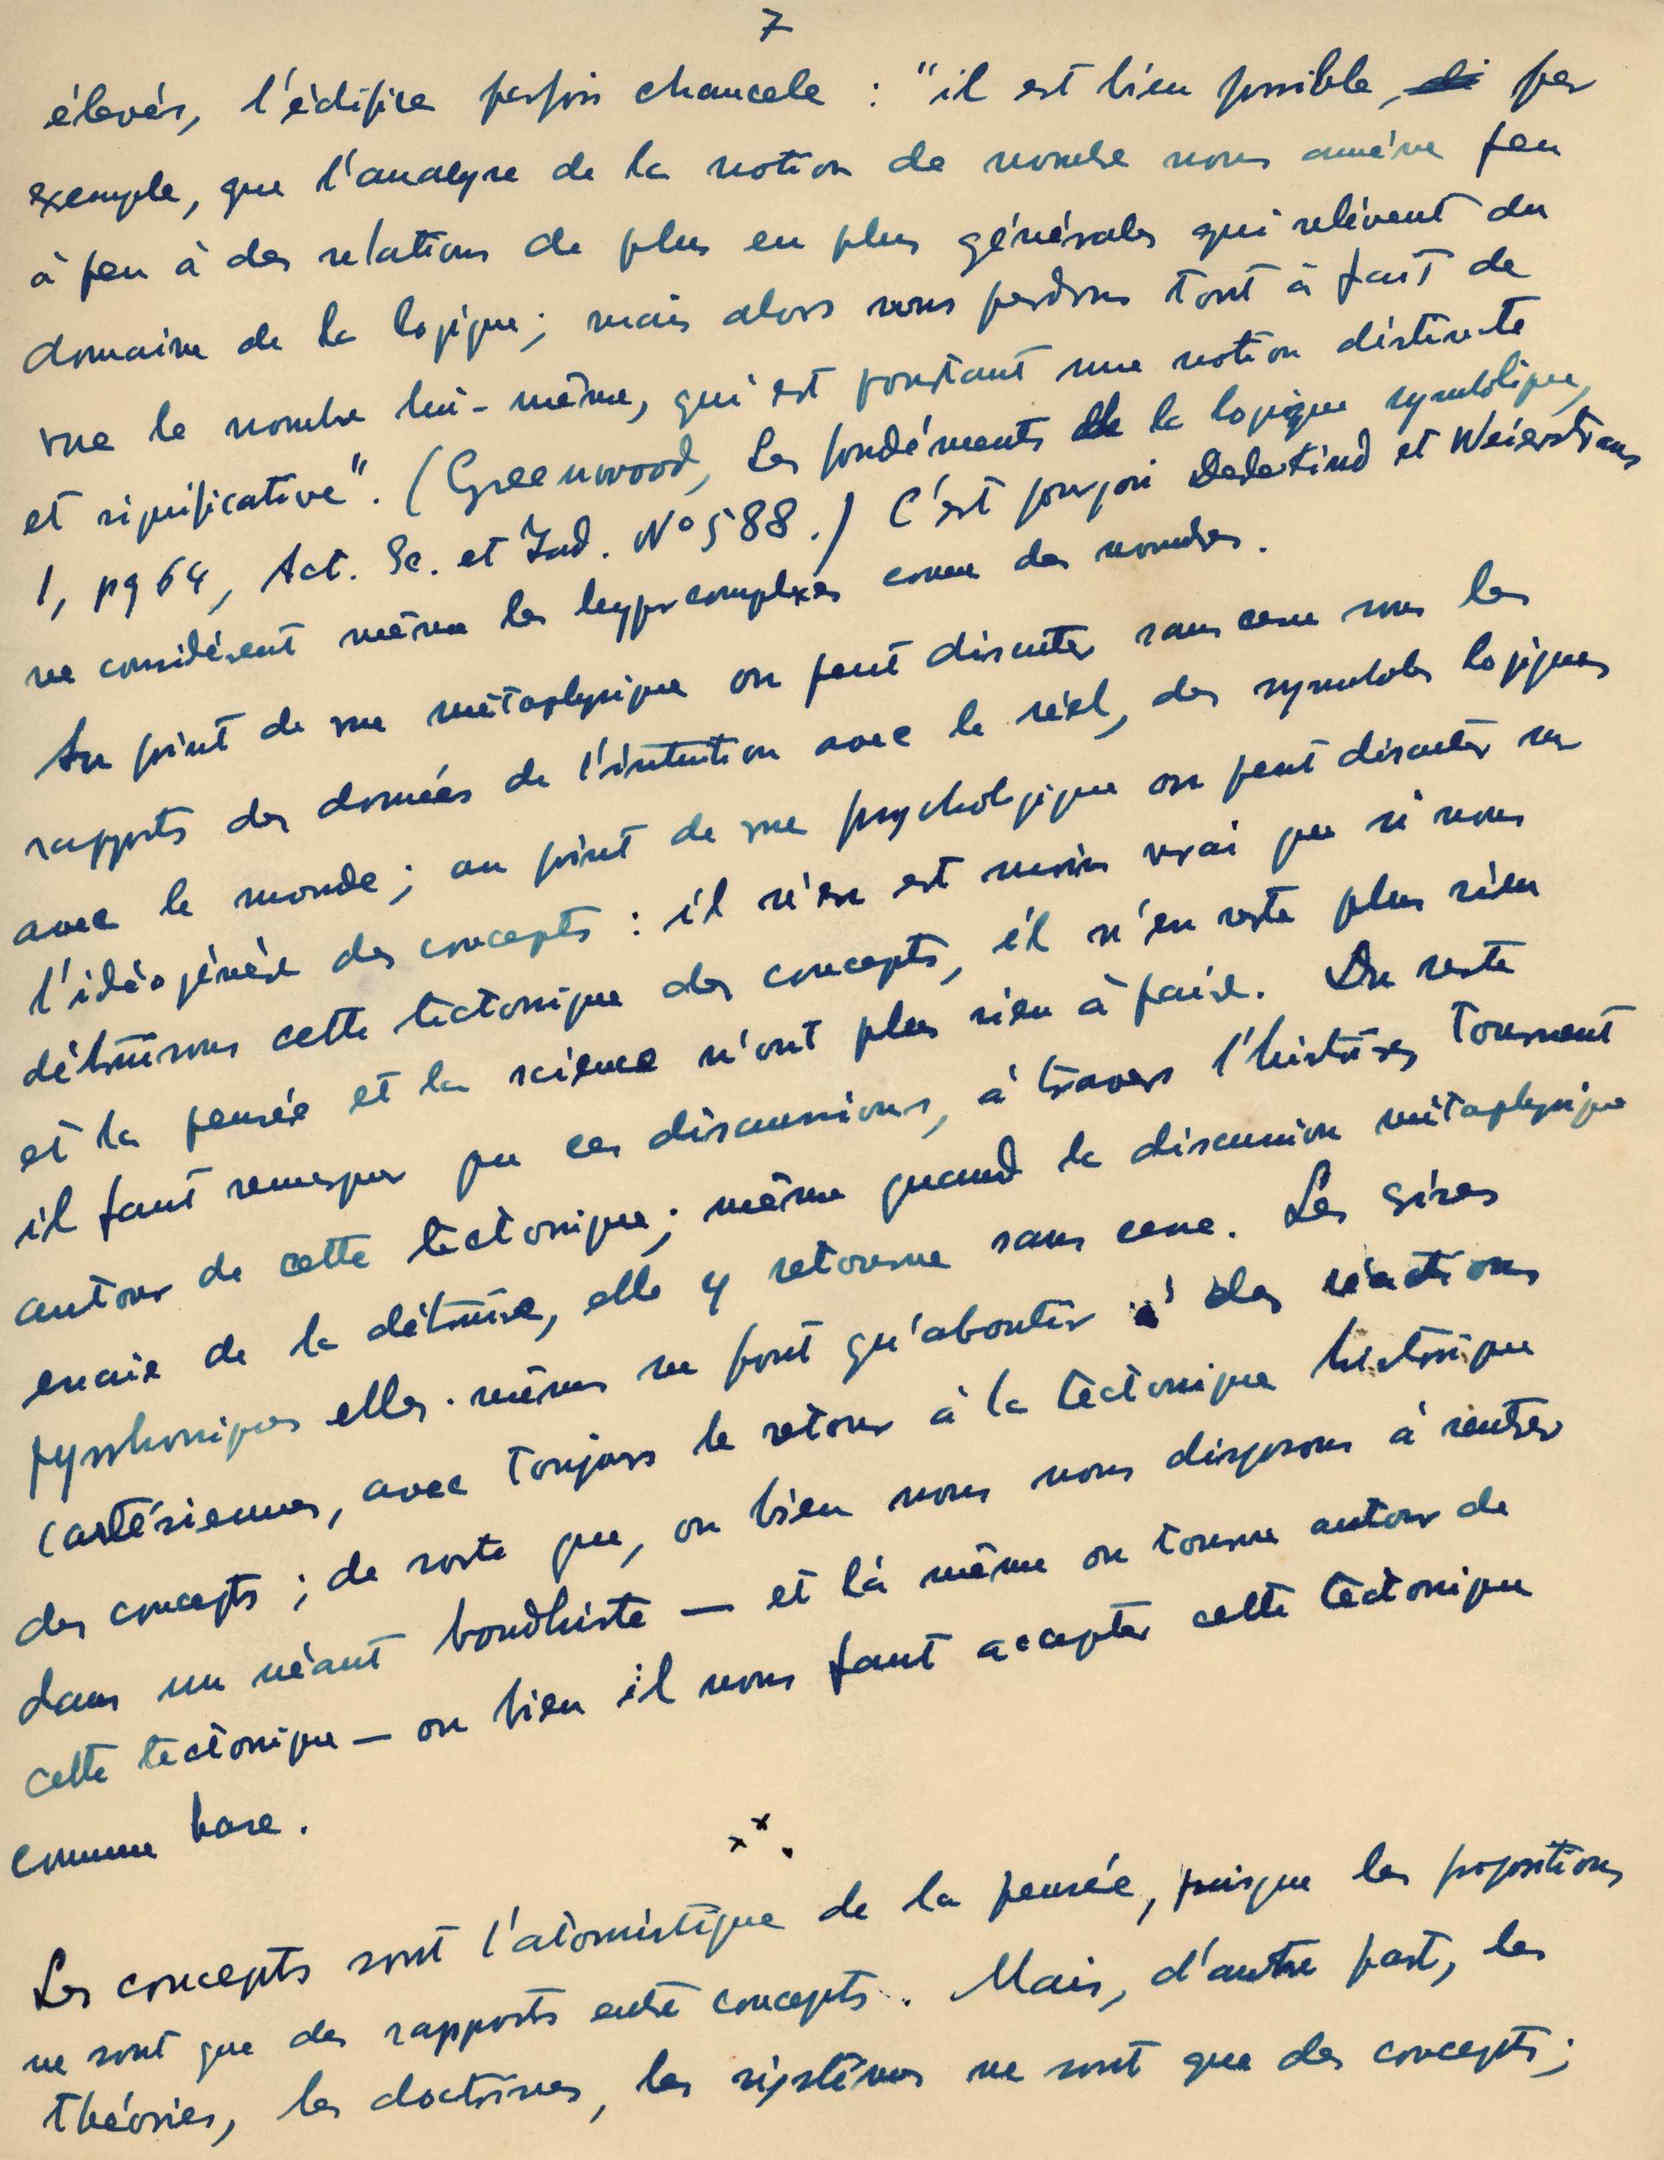 7
élevés, l'édifice parfois chancele : "il est bien possible, par
exemple, que l'analyse de la notion de nombre nous amène peu
à peu à des relations de plus en plus générales qui relèvent du
domaine de la logique; mais alors nous perdrons tout à fait de
vue le nombre lui-même, qui est pourtant une notion distincte
et significative". (Greenwood, Les fondéments de la logique symbolique,
1, pg 64, Act. Sc. et Ind. Nº 588.) C'est pourquoi Dedekind et Weierstrass
ne considérent même les hypercomplexes come des nombres.
Au point de vue métaphysique on peut discuter sans cesse sous les
rapports des données de l'intuition avec le réel, des symboles logiques
avec le monde; au point de vue psychologique on peut discuter sur
l'idéogénèse des concepts : il n'en est moins vrai que si nous
détruisons cette tectonique des concepts, il n'en reste plus rien
et la pensée et la science n'ont plus rien à faire. Du reste
il faut remarquer que ces discussions, à travers l'histoire, tournent
autour de cette tectonique; même quand la discussion métaphysique
essaie de la détruire, elle y retourne sans cesse. Les crises
pyrrhoniques elles-mêmes ne font qu'aboutir à des réactions
cartésiennes, avec toujours le retour à la tectonique historique
des concepts; de sorte que, ou bien nous nous disposons à rentrer
dans un néant boudhiste — et là même on tourne autour de
cette tectonique — ou bien il nous faut accepter cette tectonique
comme base.
x x .
Les concepts sont l'atomistique de la pensée, puisque les propositions
ne sont que des rapports entre concepts. Mais, d'autre part, les
théories, les doctrines, les sistèmes ne sont que des concepts;